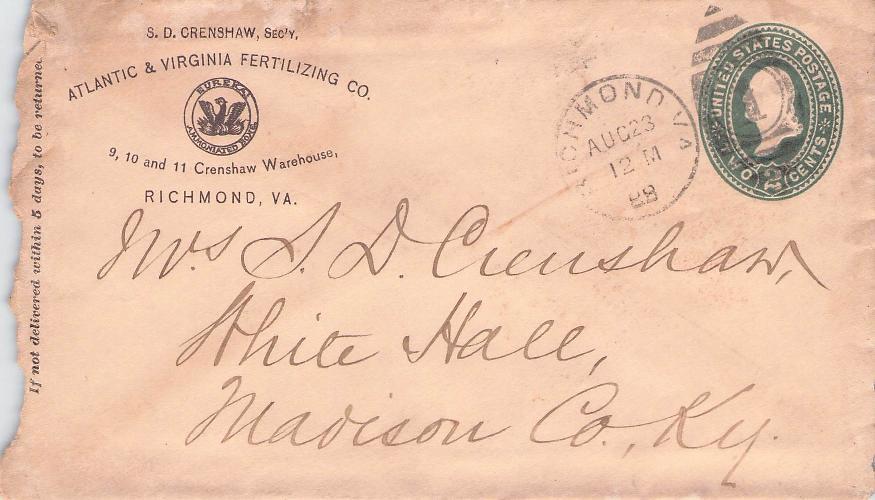 S. D. CRENSHAW, SEC'Y,
ATLANTIC & VIRGINIA FERTILIZING CO.
EUREKA
AMMONIATED BONE
9, 10 and 11 Crenshaw Warehouse,
RICHMOND, VA.
If not delivered within 5 days, to be returned
RICHMOND VA
AUG 23
12 M
88
UNITED STATES POSTAGE
TWO 2 CENTS
Mrs. S. D. Crenshaw,
White Hall,
Madison Co., Ky.